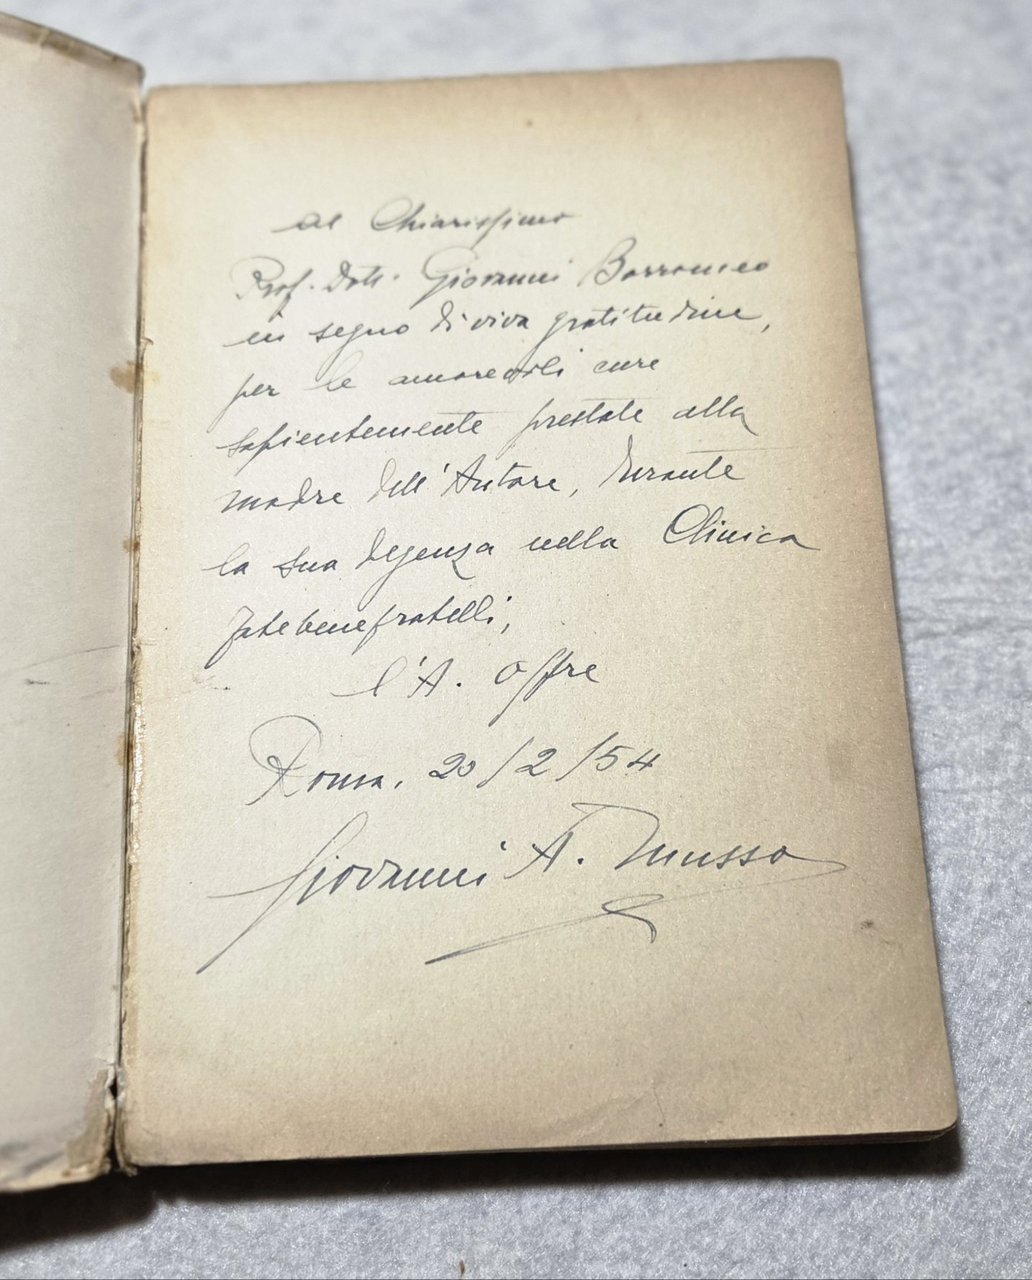 al Chiarissimo
Prof. Dott. Giovanni Borromeo
in segno di viva gratitudine,
per le amorevoli cure
sapientemente prestate alla
madre dell'Autore, durante
la sua degenza nella Clinica
Fatebenefratelli,
l'A. offre
Roma, 20/2/54
Giovanni A. Musso